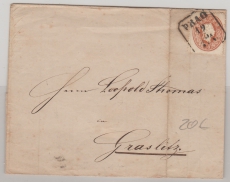 PRAG
Herrn Leopold Thomas
in
Graslitz